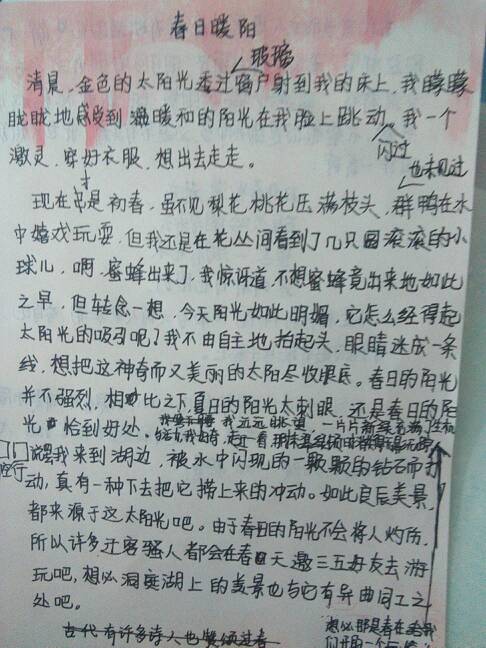 春日暖阳
玻璃
清晨,金色的太阳光透过窗户射到我的床上,我朦朦
胧胧地感觉到温暖和的阳光在我脸上跳动,我一个
闪过
激灵,穿好衣服,想出去走走。
也未见过
才
现在只是初春,虽不见梨花,桃花压满枝头,群鸭在水
中嬉戏玩耍,但我还是在花丛间看到了几只圆滚滚的小
球儿,啊,蜜蜂出来了,我惊讶道,不想蜜蜂竟出来地如此
之早,但转念一想,今天阳光如此明媚,它怎么经得起
太阳光的吸引呢?我不由自主地抬起头,眼睛迷成一条
线,想把这神奇而又美丽的太阳尽收眼底。春日的阳光
并不强烈,相比之下,夏日的阳光太刺眼,还是春日的阳
光恰到好处。
我来到湖边,被水中闪现的一颗颗的钻石而打
动,真有一种下去把它捞上来的冲动。如此良辰美景,
都来源于这太阳光吧。由于春日的阳光不会将人灼伤,
所以许多迁客骚人都会在春天邀三五好友去游
玩吧,想必洞庭湖上的美景也与它有异曲同工之
处吧。
古代有许多诗人也赞颂过春
想必那是春在给我
们开的一个